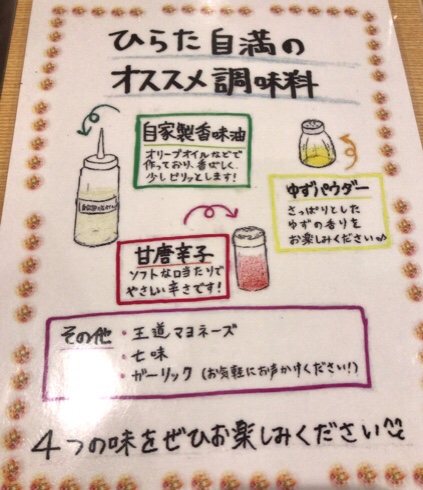 ひらた自満の
オススメ調味料
自家製香味油
オリーブオイルなどで
作っており、香ばしく、
少しピリッとします!
ゆずパウダー
さっぱりとした
ゆずの香りを
お楽しみください♪
甘唐辛子
ソフトな口当たりで
やさしい辛さです!
その他・王道マヨネーズ
・七味
・ガーリック(お気軽にお声かけください!)
4つの味をぜひお楽しみください